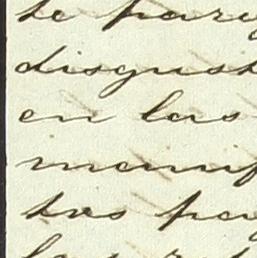 te pare
disgust
en las
manif
tos pa